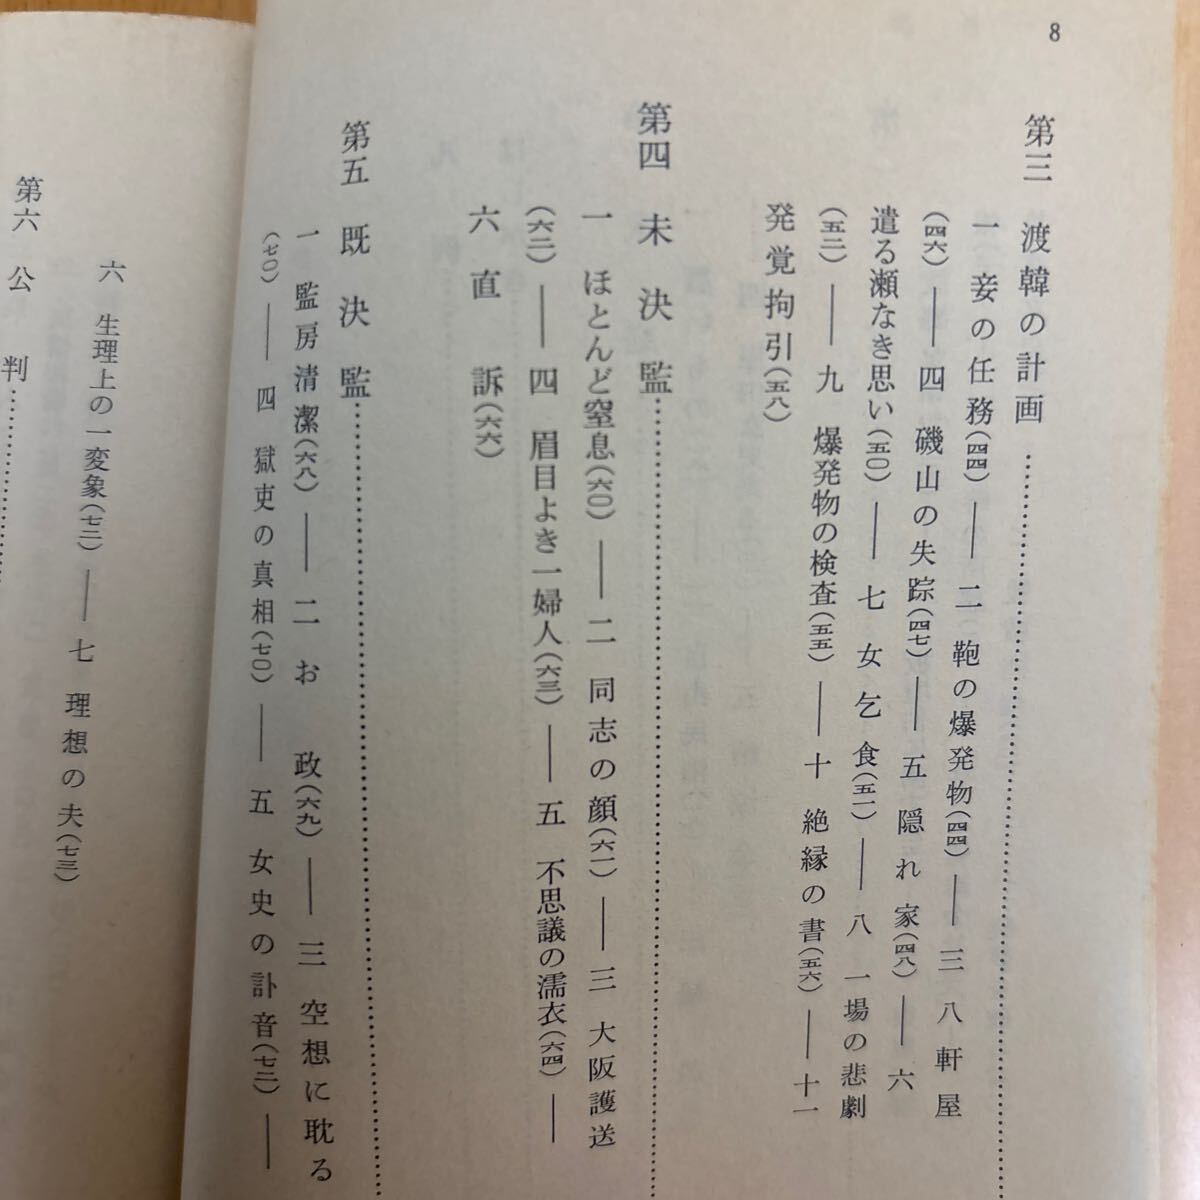 8
第三 渡韓の計画…………
一 妾の任務(四四)――二 鞄の爆発物(四四)――三 八軒屋
(四六)――四 磯山の失踪(四七)――五 隠れ家(四八)――六
遣る瀬なき思い(五〇)――七 女乞食(五一)――八 一場の悲劇
(五二)――九 爆発物の検査(五五)――十 絶縁の書(五六)――十一
発覚拘引(五八)
第四 未決監…………
一 ほとんど窒息(六〇)――二 同志の顔(六一)――三 大阪護送
(六二)――四 眉目よき一婦人(六三)――五 不思議の濡衣(六四)――
六 直訴(六六)
第五 既決監…………
一 監房清潔(六八)――二 お政(六九)――三 空想に耽る
(七〇)――四 獄吏の真相(七〇)――五 女史の訃音(七二)――
六 生理上の一変象(七二)――七 理想の夫(七三)
第六 公判…………